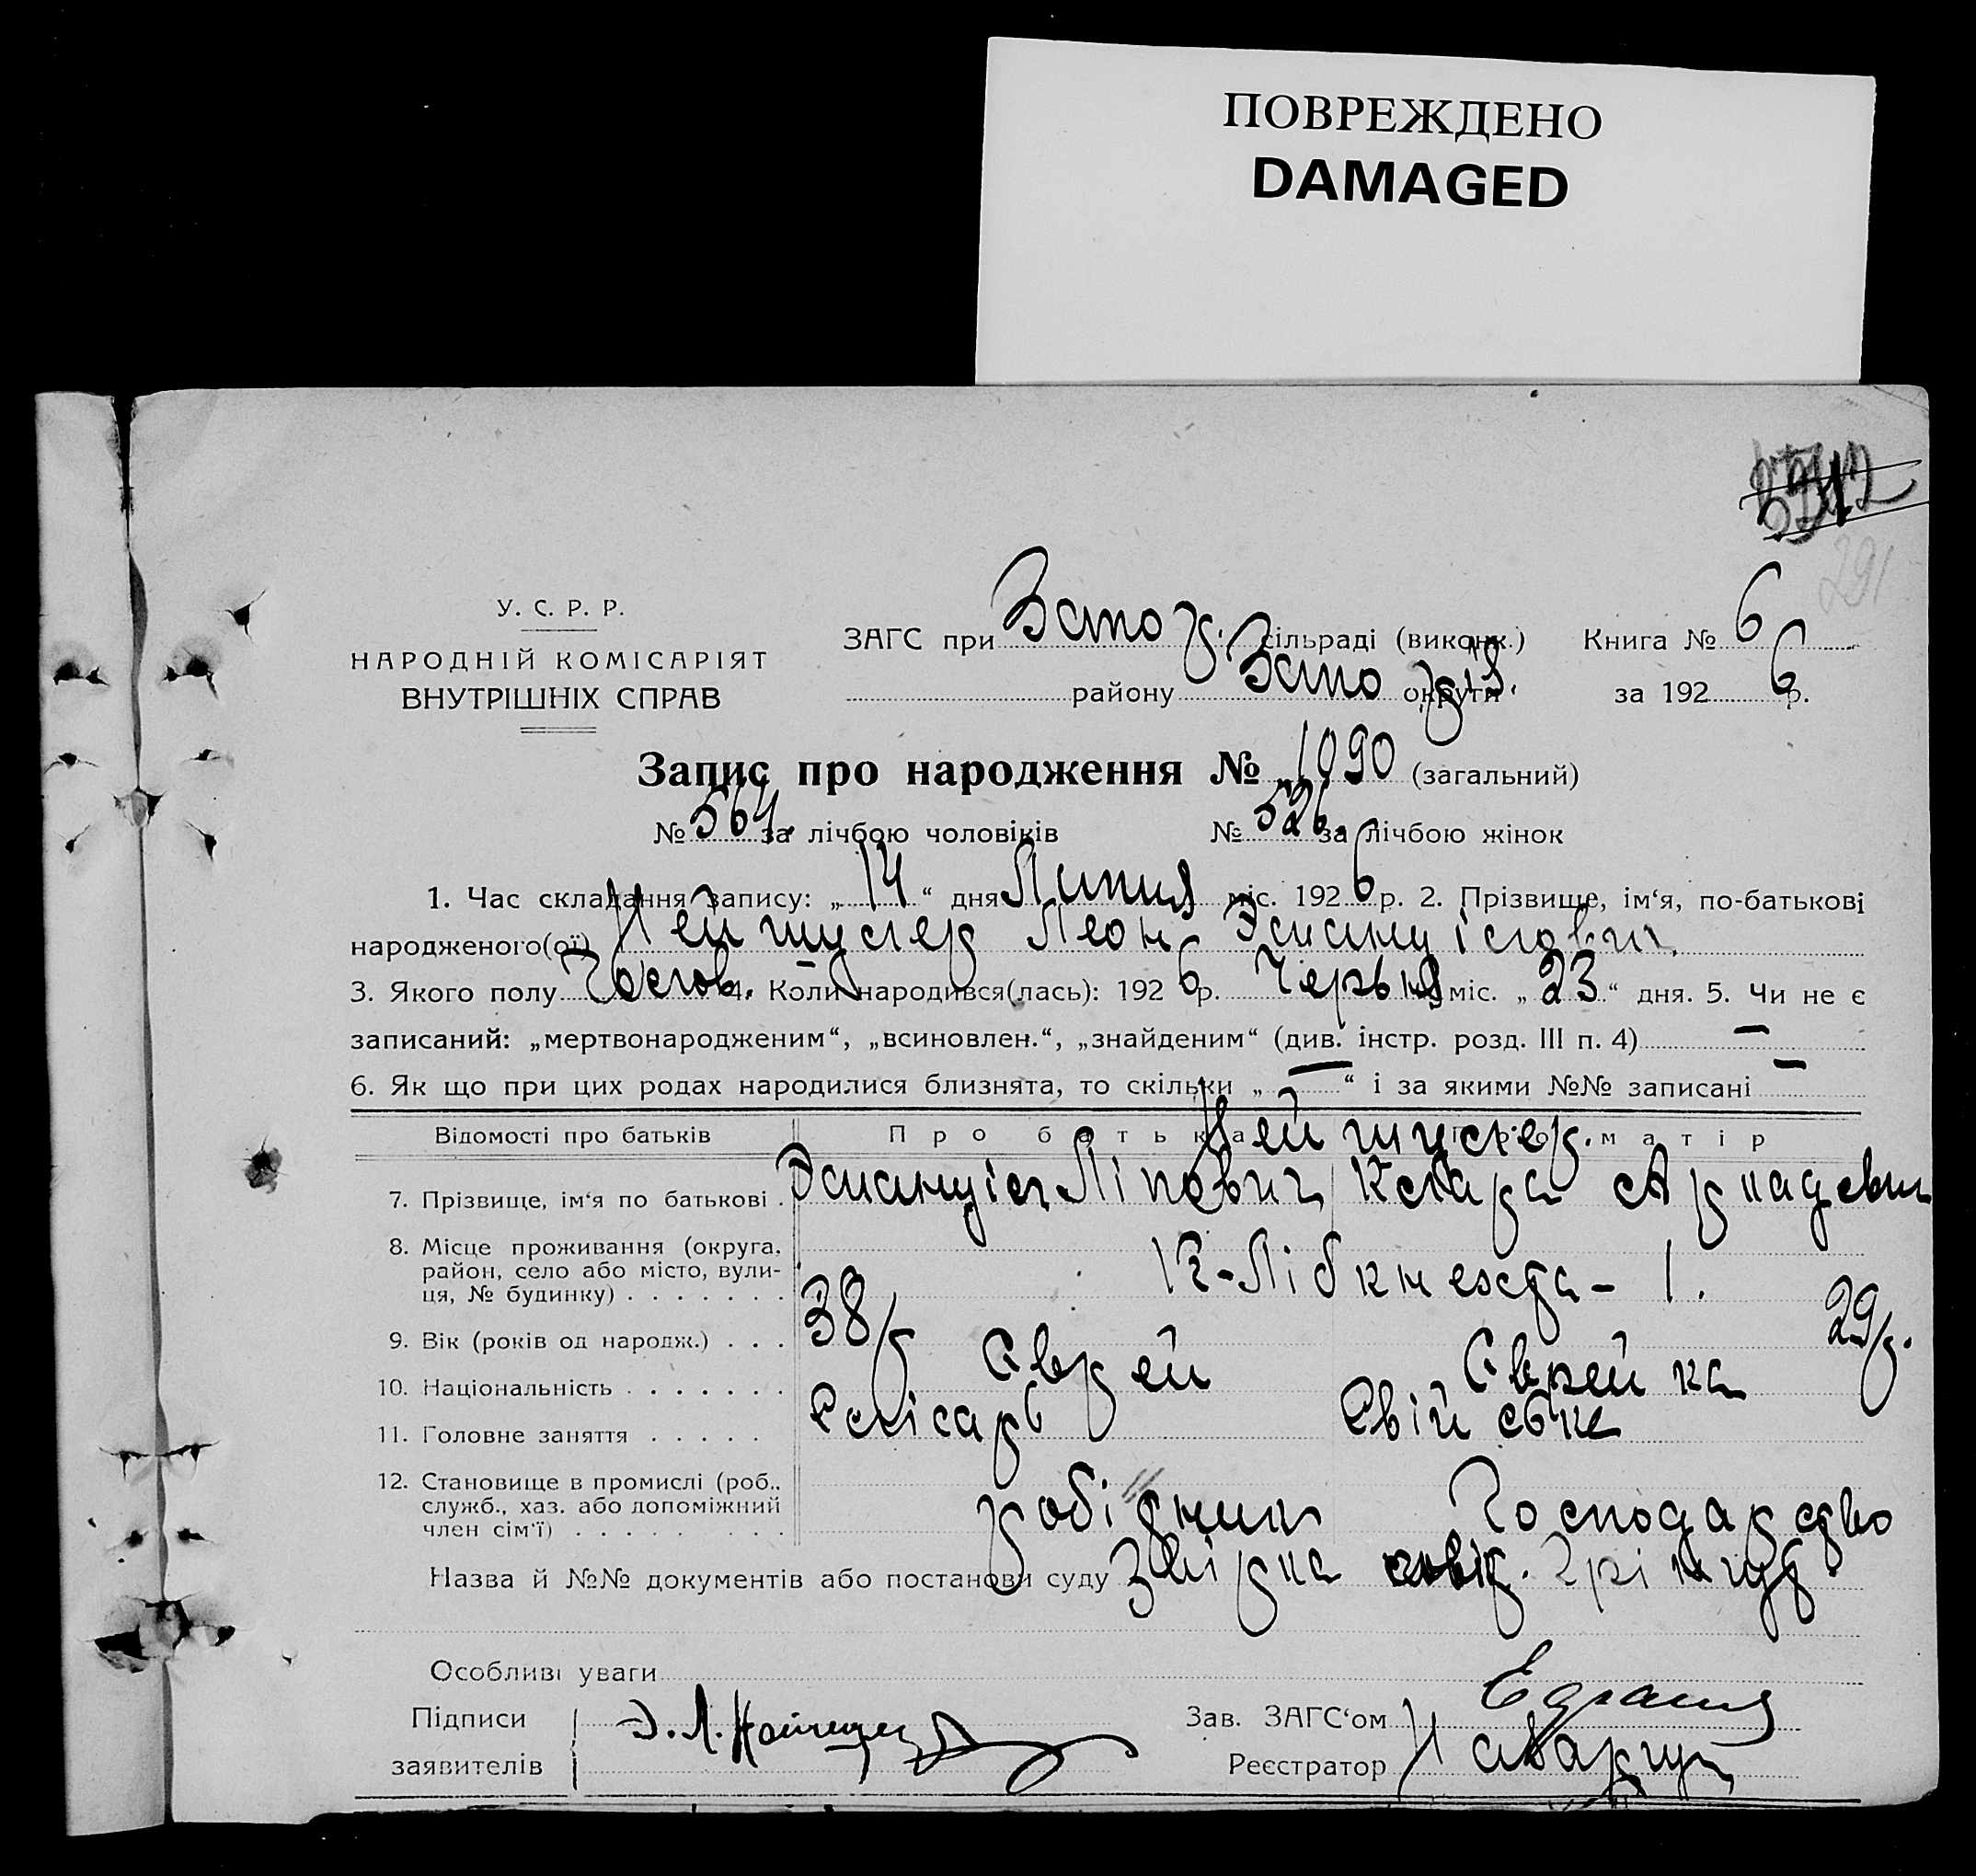 ПОВРЕЖДЕНО
DAMAGED
291
У. С. Р. Р.
НАРОДНІЙ КОМІСАРІЯТ
ВНУТРІШНІХ СПРАВ
ЗАГС при сільраді (виконк.) Книга № 6
району округи за 192 6 р.
Запис про народження № 1090 (загальний)
№ 564. за лічбою чоловіків № 526. за лічбою жінок
1. Час складання запису: „ 14 “ дня Липня міс. 192 6 р. 2. Прізвище, ім‘я, по-батькові
народженого(ої) Нейшулер Леон
3. Якого полу Чолов. 4. Коли народився(лась): 192 6 р. Червня міс. „ 23 “ дня. 5. Чи не є
записаний: „мертвонародженим“, „всиновлен.“, „знайденим“ (див. інстр. розд. III п. 4) —
6. Як що при цих родах народилися близнята, то скільки „ — “ і за якими №№ записані —
Відомості про батьків Про батька Про матір
Нейшулер.
7. Прізвище, ім‘я по батькові . Ліпович Клара Арпадевн
8. Місце проживання (округа,
район, село або місто, вули-
ця, № будинку) . . . . . . . К-Лібкнехта - 1.
9. Вік (років од народж.) . . . 38/р 29/р.
10. Національність . . . . . . . Єврей Єврейка
11. Головне заняття . . . . . Слісарь Свійське
12. Становище в промислі (роб.,
служб., хаз. або допоміжний
член сім‘ї) . . . . . . . . . робітник Господарство
Назва й №№ документів або постанови суду
Особливі уваги
Підписи
заявителів Э. Л.
Зав. ЗАГС‘ом
Реєстратор